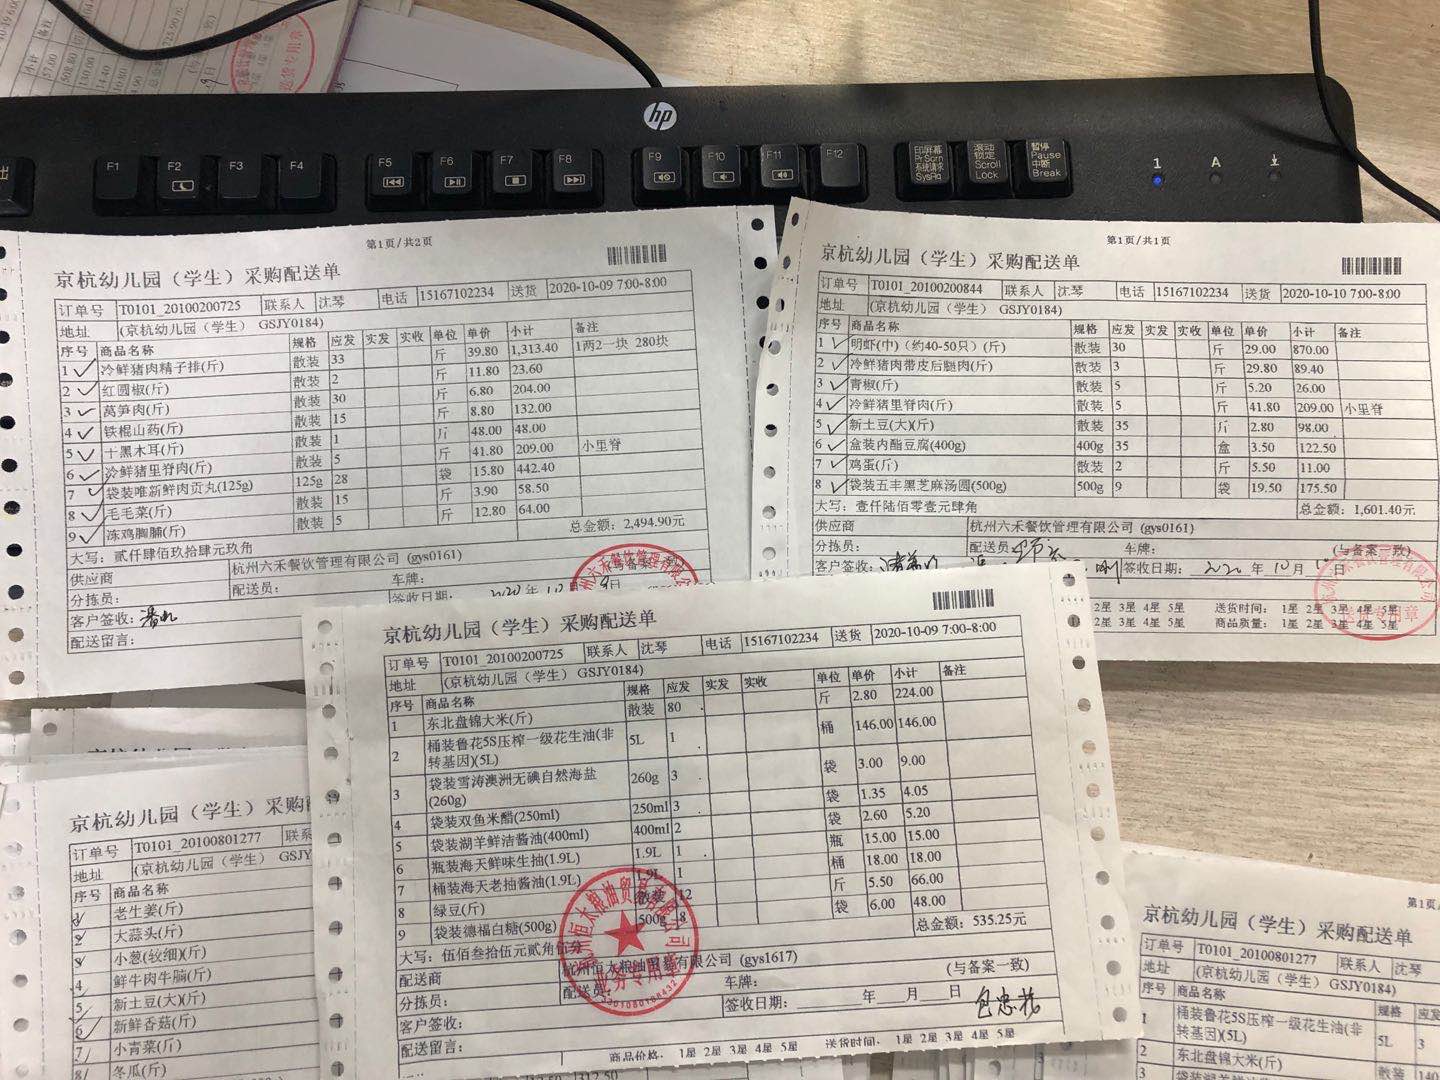 hp
F1 F2 F3 F4 F5 F6 F7 F8 F9 F10 F11 F12
印屏幕 Pr Scrn 系统请求 SysRq
滚动 锁定 Scroll Lock
暂停 Pause 中断 Break
1 A
第1页/共2页
京杭幼儿园（学生）采购配送单
订单号 T0101_20100200725 联系人 沈琴 电话 15167102234 送货 2020-10-09 7:00-8:00
地址 (京杭幼儿园（学生） GSJY0184)
序号 商品名称 规格 应发 实发 实收 单位 单价 小计 备注
1 冷鲜猪肉精子排(斤) 散装 33 斤 39.80 1,313.40 1两2一块 280块
2 红圆椒(斤) 散装 2 斤 11.80 23.60
3 莴笋肉(斤) 散装 30 斤 6.80 204.00
4 铁棍山药(斤) 散装 15 斤 8.80 132.00
5 十黑木耳(斤) 散装 1 斤 48.00 48.00
6 冷鲜猪里脊肉(斤) 散装 5 斤 41.80 209.00 小里脊
7 袋装唯新鲜肉贡丸(125g) 125g 28 袋 15.80 442.40
8 毛毛菜(斤) 散装 15 斤 3.90 58.50
9 冻鸡胸脯(斤) 散装 5 斤 12.80 64.00
大写：贰仟肆佰玖拾肆元玖角 总金额：2,494.90元
供应商 杭州六禾餐饮管理有限公司 (gys0161)
分拣员： 配送员： 车牌：
客户签收： 签收日期： 2020 年 10 9日
配送留言：
第1页/共1页
京杭幼儿园（学生）采购配送单
订单号 T0101_20100200844 联系人 沈琴 电话 15167102234 送货 2020-10-10 7:00-8:00
地址 (京杭幼儿园（学生） GSJY0184)
序号 商品名称 规格 应发 实发 实收 单位 单价 小计 备注
1 明虾(中)（约40-50只）(斤) 散装 30 斤 29.00 870.00
2 冷鲜猪肉带皮后腿肉(斤) 散装 3 斤 29.80 89.40
3 青椒(斤) 散装 5 斤 5.20 26.00
4 冷鲜猪里脊肉(斤) 散装 5 斤 41.80 209.00 小里脊
5 新土豆(大)(斤) 散装 35 斤 2.80 98.00
6 盒装内酯豆腐(400g) 400g 35 盒 3.50 122.50
7 鸡蛋(斤) 散装 2 斤 5.50 11.00
8 袋装五丰黑芝麻汤圆(500g) 500g 9 袋 19.50 175.50
大写：壹仟陆佰零壹元肆角 总金额：1,601.40元
供应商 杭州六禾餐饮管理有限公司 (gys0161)
分拣员： 配送员 车牌： (与备案一致)
客户签收： 签收日期： 2020 年 10 月 日
2星 3星 4星 5星 送货时间： 1星 2星 3星 4星 5星
2星 3星 4星 5星 商品质量： 1星 2星 3星 4星 5星
京杭幼儿园（学生）采购配送单
订单号 T0101_20100200725 联系人 沈琴 电话 15167102234 送货 2020-10-09 7:00-8:00
地址 (京杭幼儿园（学生） GSJY0184)
序号 商品名称 规格 应发 实发 实收 单位 单价 小计 备注
1 东北盘锦大米(斤) 散装 80 斤 2.80 224.00
2 桶装鲁花5S压榨一级花生油(非转基因)(5L) 5L 1 桶 146.00 146.00
3 袋装雪涛澳洲无碘自然海盐(260g) 260g 3 袋 3.00 9.00
4 袋装双鱼米醋(250ml) 250ml 3 袋 1.35 4.05
5 袋装湖羊鲜洁酱油(400ml) 400ml 2 袋 2.60 5.20
6 瓶装海天鲜味生抽(1.9L) 1.9L 1 瓶 15.00 15.00
7 桶装海天老抽酱油(1.9L) 1.9L 1 桶 18.00 18.00
8 绿豆(斤) 散装 12 斤 5.50 66.00
9 袋装德福白糖(500g) 500g 8 袋 6.00 48.00
大写：伍佰叁拾伍元贰角伍分 总金额：535.25元
配送商 杭州恒木粮油贸易有限公司 (gys1617)
分拣员： 配送员： 车牌： (与备案一致)
客户签收： 签收日期： 年 月 日
配送留言：
商品价格： 1星 2星 3星 4星 5星 送货时间： 1星 2星 3星 4星 5星
京杭幼儿园（学生）采购
订单号 T0101_20100801277 联系
地址 (京杭幼儿园（学生） GSJY
序号 商品名称
1 老生姜(斤)
2 大蒜头(斤)
3 小葱(较细)(斤)
4 鲜牛肉牛腩(斤)
5 新土豆(大)(斤)
6 新鲜香菇(斤)
7 小青菜(斤)
8 冬瓜(斤)
第1页/
京杭幼儿园（学生）采购配送单
订单号 T0101_20100801277 联系人 沈琴
地址 (京杭幼儿园（学生） GSJY0184)
序号 商品名称 规格 应发
1 桶装鲁花5S压榨一级花生油(非转基因)(5L) 5L 3
2 东北盘锦大米(斤) 散装 140